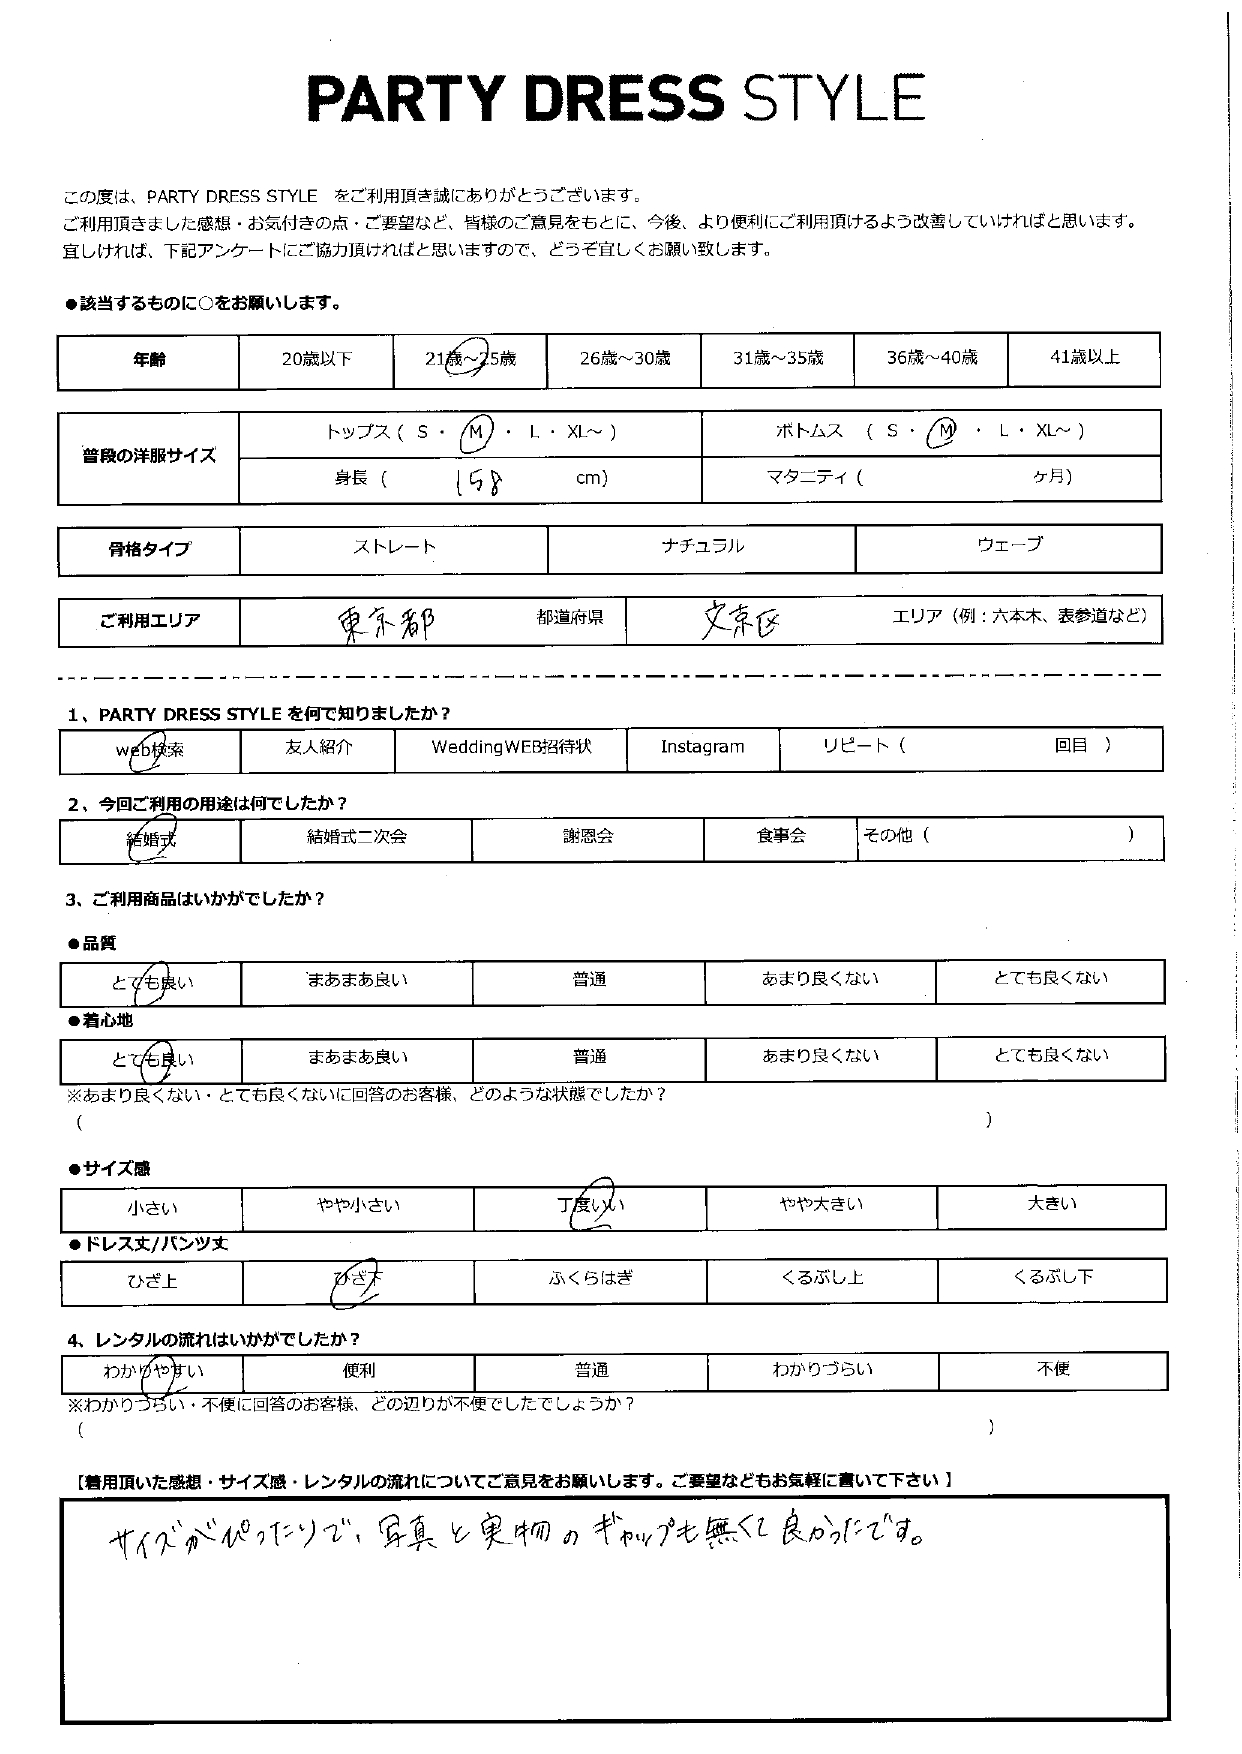 PARTY DRESS STYLE
この度は、PARTY DRESS STYLE　をご利用頂き誠にありがとうございます。
ご利用頂きました感想・お気付きの点・ご要望など、皆様のご意見をもとに、今後、より便利にご利用頂けるよう改善していければと思います。
宜しければ、下記アンケートにご協力頂ければと思いますので、どうぞ宜しくお願い致します。
●該当するものに○をお願いします。
年齢 20歳以下 21歳～25歳 26歳～30歳 31歳～35歳 36歳～40歳 41歳以上
普段の洋服サイズ
トップス ( S ・ M ・ L ・ XL～ ) ボトムス ( S ・ M ・ L ・ XL～ )
身長 ( 158 cm) マタニティ ( ヶ月)
骨格タイプ ストレート ナチュラル ウェーブ
ご利用エリア 東京都 都道府県 文京区 エリア（例：六本木、表参道など）
1、PARTY DRESS STYLE を何で知りましたか？
web検索 友人紹介 WeddingWEB招待状 Instagram リピート ( 回目 )
2、今回ご利用の用途は何でしたか？
結婚式 結婚式二次会 謝恩会 食事会 その他 ( )
3、ご利用商品はいかがでしたか？
●品質
とても良い まあまあ良い 普通 あまり良くない とても良くない
●着心地
とても良い まあまあ良い 普通 あまり良くない とても良くない
※あまり良くない・とても良くないに回答のお客様、どのような状態でしたか？
( )
●サイズ感
小さい やや小さい 丁度いい やや大きい 大きい
●ドレス丈/パンツ丈
ひざ上 ひざ下 ふくらはぎ くるぶし上 くるぶし下
4、レンタルの流れはいかがでしたか？
わかりやすい 便利 普通 わかりづらい 不便
※わかりづらい・不便に回答のお客様、どの辺りが不便でしたでしょうか？
( )
【着用頂いた感想・サイズ感・レンタルの流れについてご意見をお願いします。ご要望などもお気軽に書いて下さい 】
サイズがぴったりで、写真と実物のギャップも無くて良かったです。